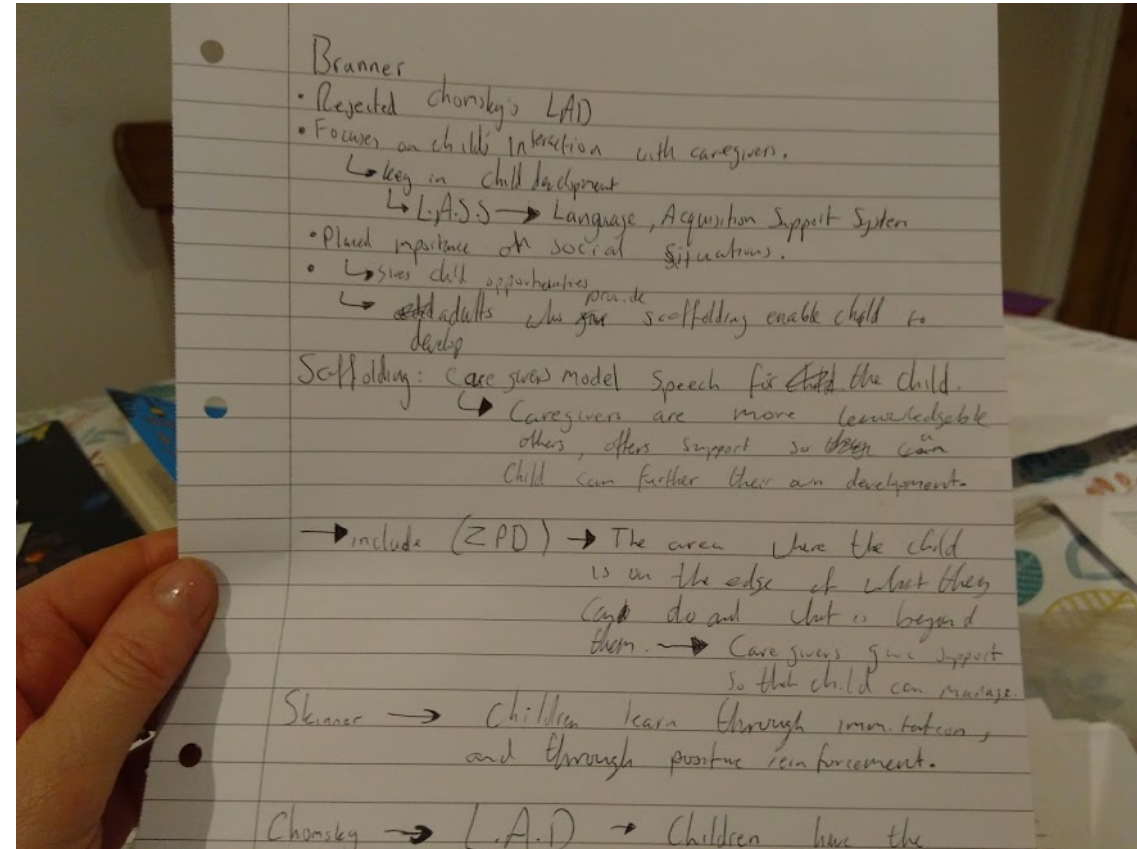 Brunner
• Rejected Chomsky's LAD
• Focuses on child's interaction with caregivers.
↳ key in child development
↳ L.A.S.S → Language, Acquisition Support System
• Placed importance on social situations.
• ↳ gives child opportunities
↳ adults who provide scaffolding enable child to
develop
Scaffolding: Care givers model speech for the child.
↳ Caregivers are more knowledgeable
others, offers support so a
child can further their own development.
→ include (ZPD) → The area where the child
is on the edge of what they
can do and what is beyond
them. → Care givers give support
so that child can manage.
Skinner → Children learn through immitation,
and through positive reinforcement.
Chomsky → L.A.D → Children have the